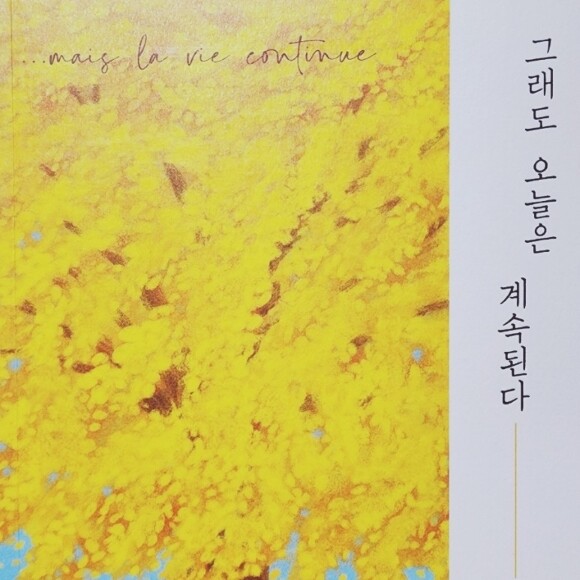 ...mais la vie continue
그래도 오늘은
계속된다